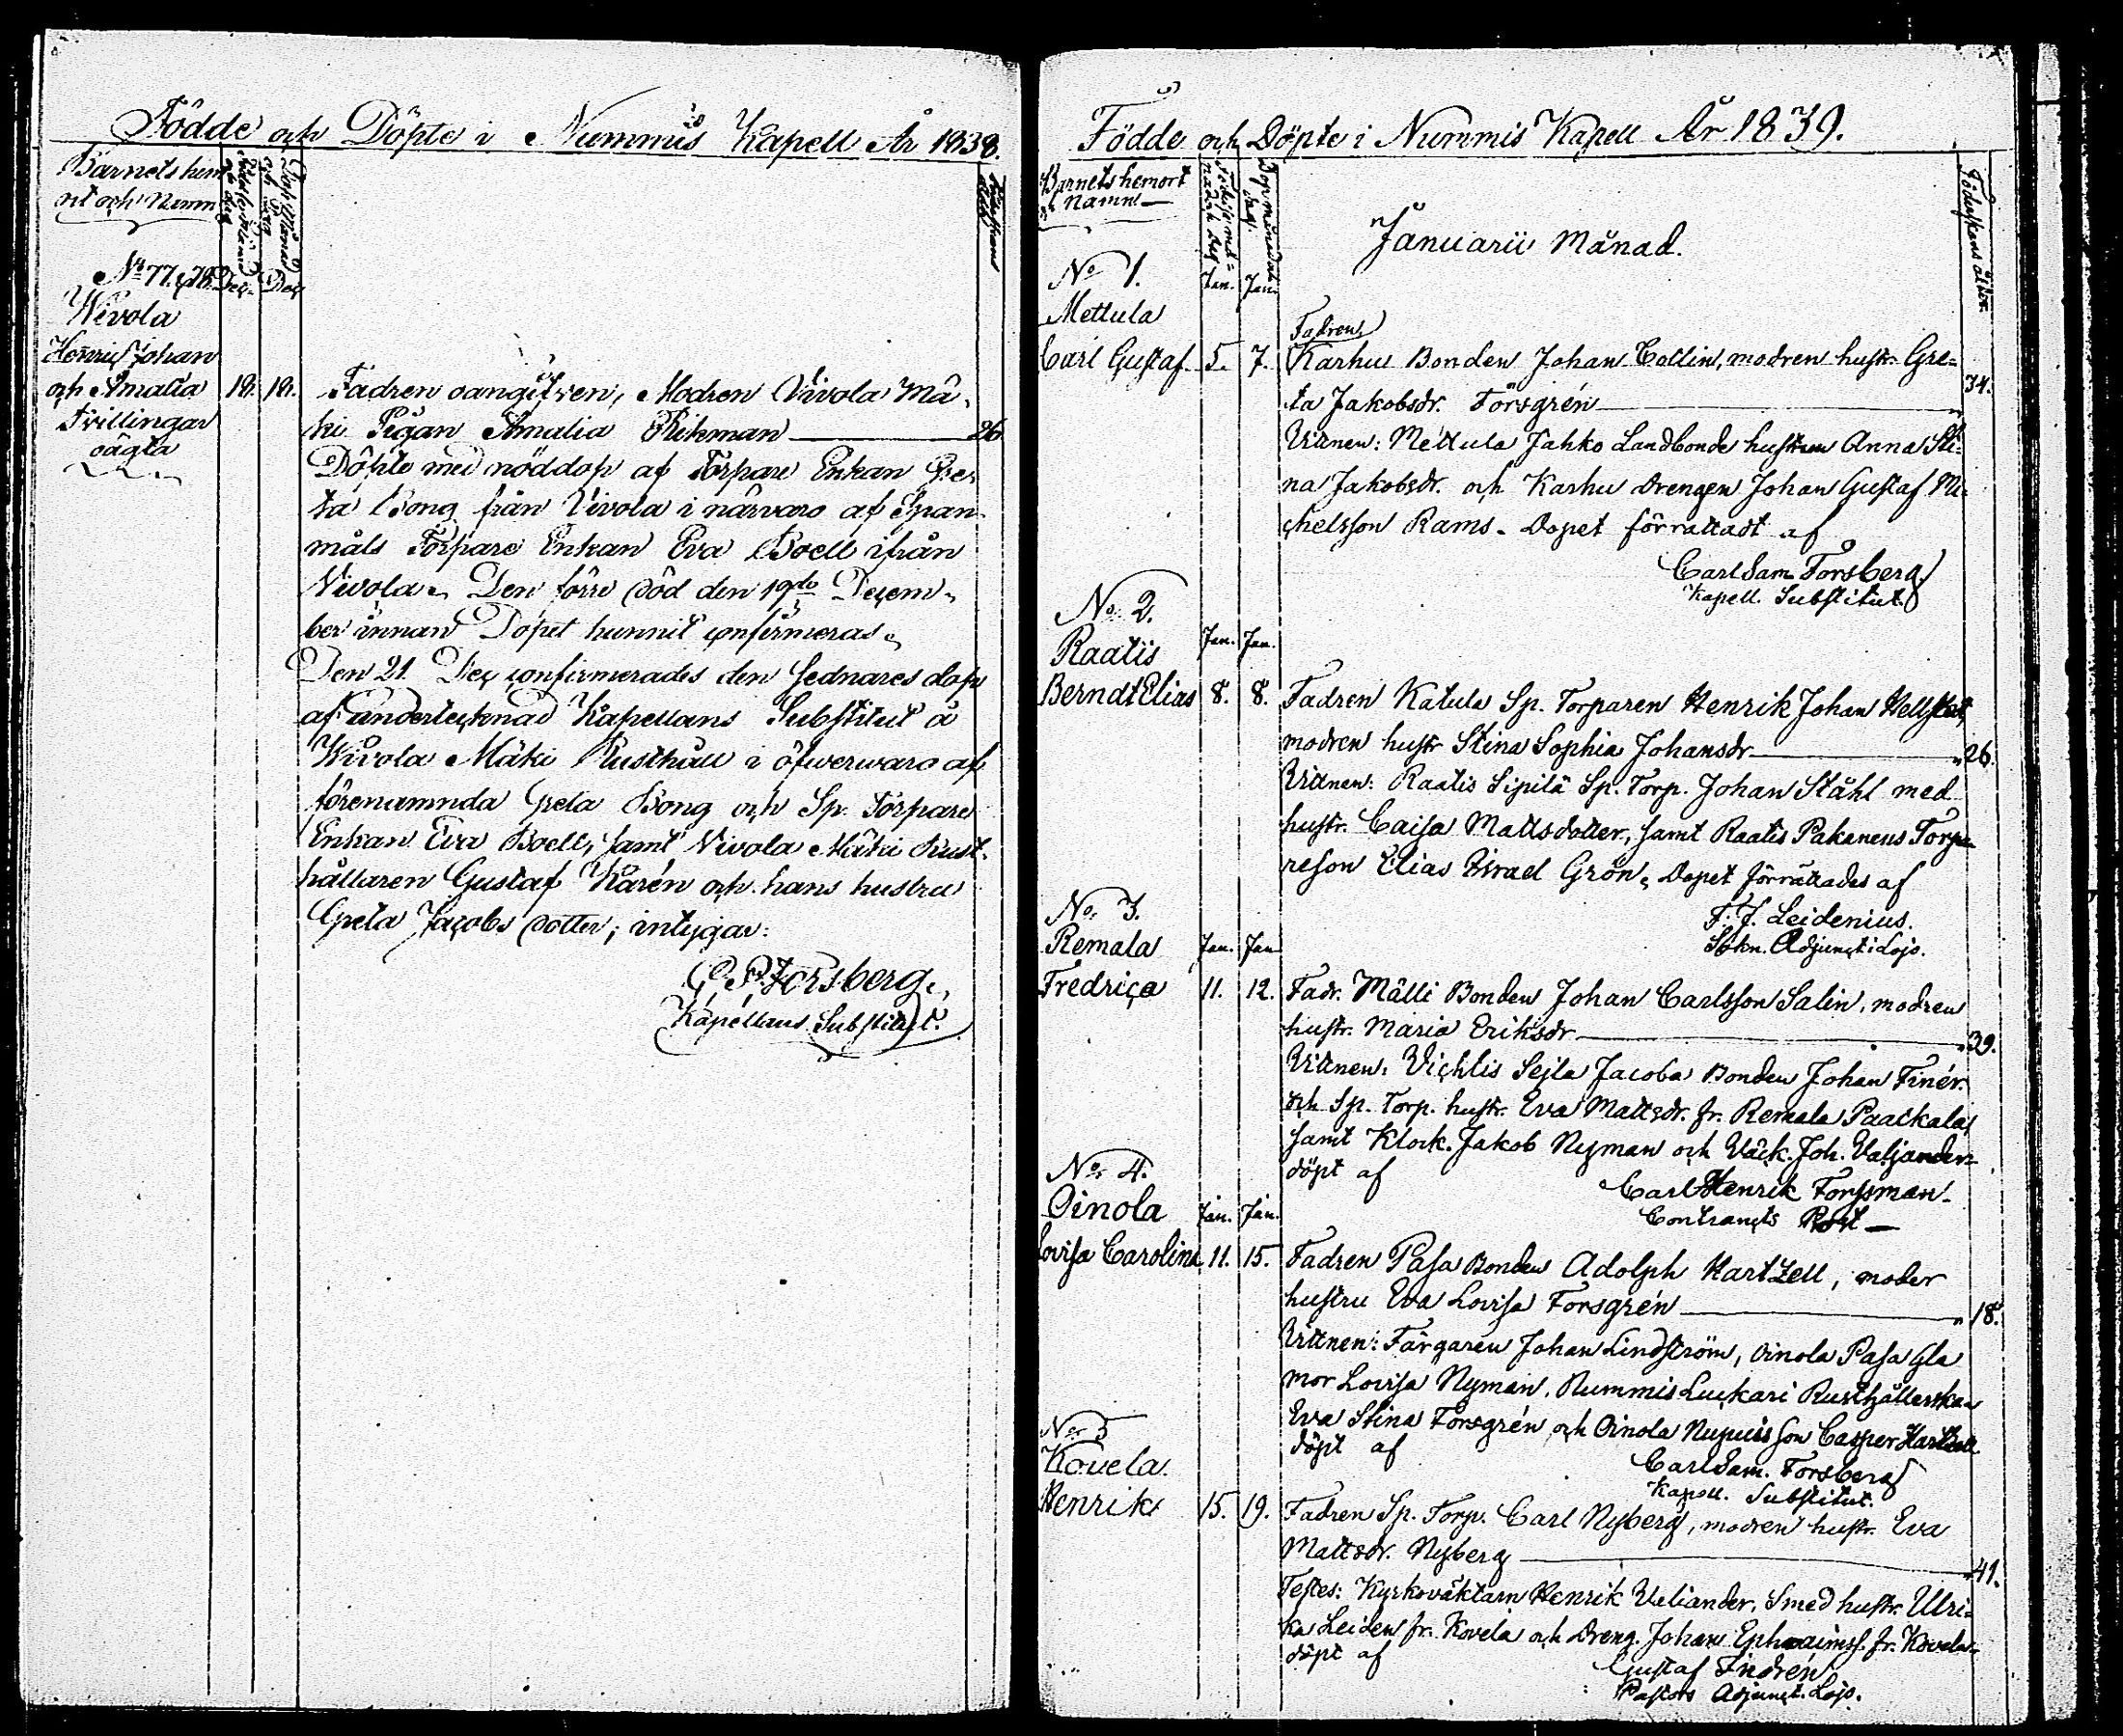 Födde och Döpte i Nummis Kapell År 1838.
Barnets hem
ort och Namn
Födelse Månad
och dag
Dop Månad
och dag
No 77. & 78. Dec. Dec
Wivola
Henric Johan
och Amalia 18. 18. Fadren oangifven, Modren Vivola Mä-
Tvillingar ki Pigan Amalia Rikman 26
oägta
Döpte med nöddop af Torpare Enkan Gre-
ta Bong från Vivola i närvaro af Span-
måls Torpare Enkan Eva Boell ifrån
Vivola. Den förre död den 19de Decem-
ber innan Döpet hunnit confirmeras.
Den 21 Dec confirmerades den sednares dop
af undertecknad Kapellans Substitut å
Wivola Mäki Rusthåll i öfwerwaro af
förenamnda Greta Bong och Sp. Torpare
Enkan Eva Boell, samt Vivola Mäki Rust-
hållaren Gustaf Karén och hans hustru
Greta Jacobs dotter; intygar:
C S Forsberg.
Kapellans Substitut.
Födde och Döpte i Nummis Kapell År 1839.
Barnets hemort
och Namn
Födelse må-
nad och dag
Dop månad och
dag.
Föderskans ålder
Januarii Månad.
No 1. Jan. Jan.
Mettula
Fadren
Carl Gustaf. 5. 7. Karhu Bonden Johan Collin, modren hustr. Gre-
ta Jakobsdr. Forsgrén 34.
Vittnen: Mettula Jahko Landbonde hustrun Anna Sti-
na Jakobsdr. och Karhu Drengen Johan Gustaf Mi-
chelsson Rams. Dopet förrattadt af
Carl Sam. Forsberg
Kapell. Substitut.
No 2.
Raatis Jan. Jan.
Berndt Elias 8. 8. Fadren Katula Sp. Torparen Henrik Johan Hellsted,
modren hustr Stina Sophia Johansdr 26.
Vittnen: Raatis Sipilä Sp. Torp. Johan Ståhl med
hustr. Caisa Mattsdotter, samt Raatis Pakanens Torpa-
reson Elias Israel Grön. Dopet förrättades af
F. J. Leidenius.
Sokn. Adjunct i Lojo.
No 3.
Remala Jan. Jan
Fredrica 11. 12. Fadr. Mälli Bonden Johan Carlsson Salin, modren
hustr. Maria Eriksdr 39.
Vittnen: Vichtis Sejla Jacoba Bonden Johan Finér.
och Sp. Torp. hustr. Eva Mattsdr. fr. Remala Paackala,
samt Klock. Jakob Nyman och Väck. Joh. Valjander
döpt af
Carl Henrik Forssman.
Contracts Prost
No 4.
Oinola Jan. Jan.
Lovisa Carolina 11. 15. Fadren Pasa Bonden Adolph Hartzell, moder
hustru Eva Lovisa Forsgrén 18.
Vittnen: Färgaren Johan Lindström, Oinola Pasa Gla
mor Lovisa Nyman, Nummis Luckari Rusthållerskan
Eva Stina Forsgrén och Oinola Nupuis son Casper Hartzell
döpt af
Carl Sam. Forsberg
Kapell. Substitut.
No 5
Kovela.
Henrik 15. 19. Fadren Sp. Torp. Carl Nyberg, modren hustr. Eva
Mattsdr. Nyberg 41.
Testes: Kyrkoväktarn Henrik Veliander, Smed hustr. Ulri-
ka Leiden fr. Kovela och Dreng. Johan Ephraimss. fr. Kovela
döpt af
Gustaf Findrén
Pastors Adjunct. Lojo.